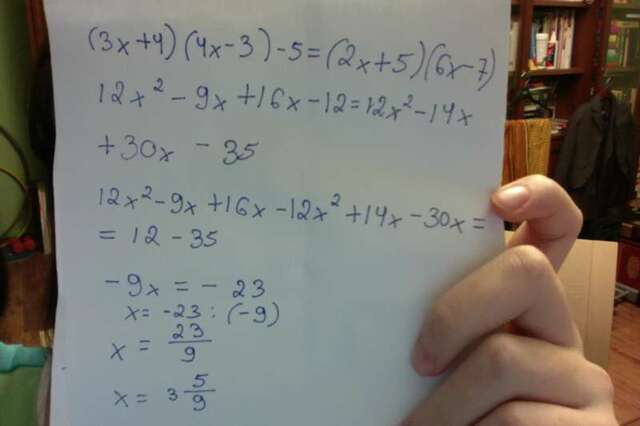 (3x+4)(4x-3)-5=(2x+5)(6x-7)
12x² - 9x + 16x - 12 = 12x² - 14x
+30x - 35
12x² - 9x + 16x - 12x² + 14x - 30x =
= 12 - 35
-9x = - 23
x = -23 : (-9)
x = 23/9
x = 3 5/9